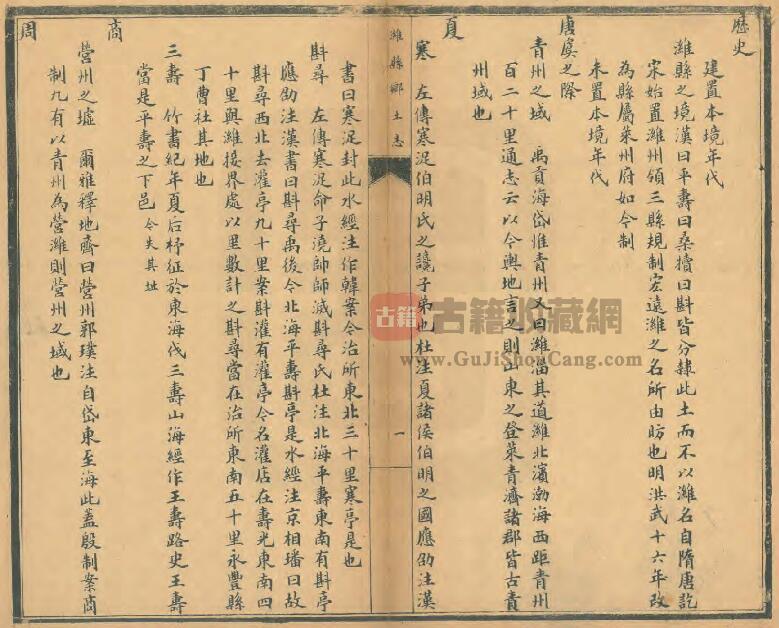 歷史
建置本境年代
濰縣之境漢曰平壽曰桑犢曰斟皆分隸此土而不以濰名自隋唐訖
宋始置濰州領三縣規制宏遠濰之名所由昉也明洪武十六年改
為縣屬萊州府如今制
未置本境年代
唐虞之際
青州之域 禹貢海岱惟青州又曰濰淄其道濰北濱渤海西距青州
百二十里通志云以今輿地言之則山東之登萊青濟諸郡皆古青
州域也
夏
寒 左傳寒浞伯明氏之讒子弟也杜注夏諸侯伯明之國應劭注漢
濰縣鄉土志
一
書曰寒浞封此水經注作韓案今治所東北三十里寒亭是也
斟尋 左傳寒浞命子澆帥師滅斟尋氏杜注北海平壽東南有斟亭
應劭注漢書曰斟尋禹後今北海平壽斟亭是水經注京相璠曰故
斟尋西北去灌亭九十里案斟灌有灌亭今名灌店在壽光東南四
十里與濰接界處以里數計之斟尋當在治所東南五十里永豐縣
丁曹社其地也
三壽 竹書紀年夏后杼征於東海伐三壽山海經作王壽路史王壽
當是平壽之下邑 今失其址
商
營州之墟 爾雅釋地齊曰營州郭璞注自岱東至海此蓋殷制案商
制九有以青州為營濰則營州之域也
周
古籍
古籍收藏網
www.GuJiShouCang.com